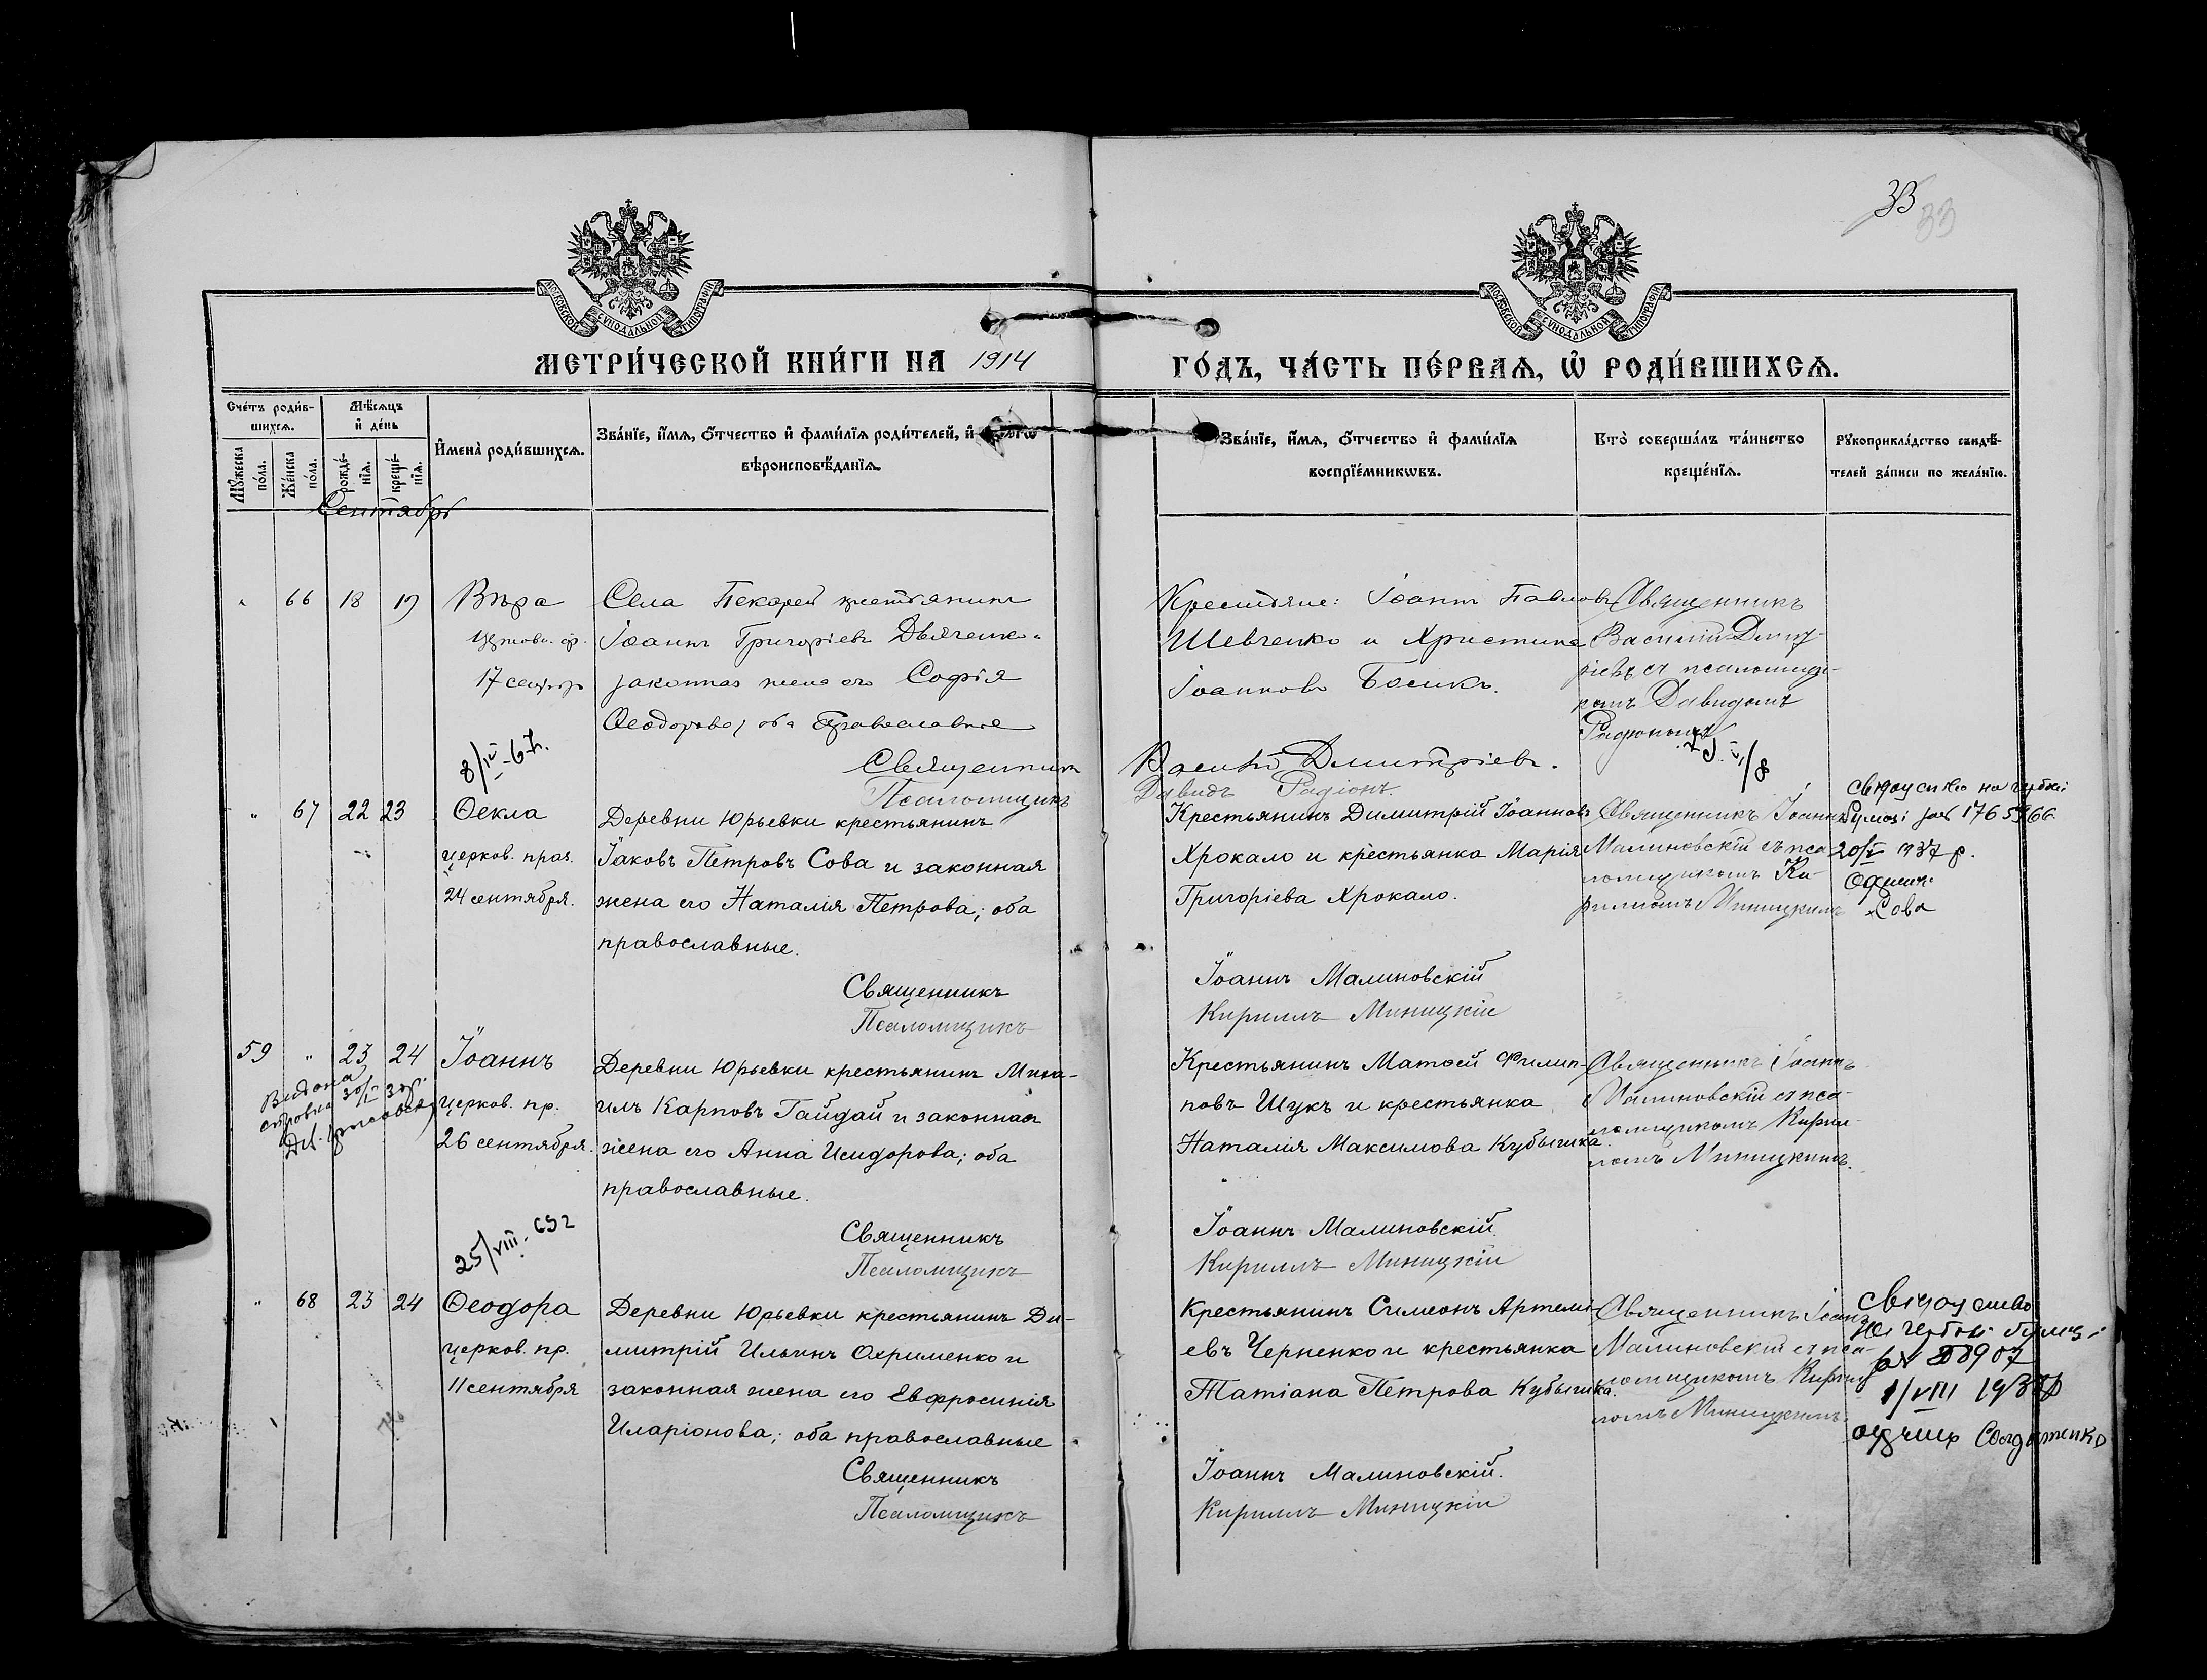 33
33
МОСКОВСКОЙ СѴНОДАЛЬНОЙ ТИПОГРАФІИ
МОСКОВСКОЙ СѴНОДАЛЬНОЙ ТИПОГРАФІИ
МЕТРИ́ЧЕСКОЙ КНИ́ГИ НА 1914
ГО́ДЪ, ЧА́СТЬ ПЕ́РВАѦ, Ѡ҆ РОДИ́ВШИХСѦ.
Сче́тъ роди́в-
шихсѧ.
Мꙋ́жеска по́ла.
Же́нска по́ла.
Мѣ́сѧцъ
и҆ де́нь
рожде́-
нїѧ.
креще́-
нїѧ.
И҆мена̀ роди́вшихсѧ.
Зва́нїе, и҆́мѧ, ѻ҆́тчество и҆ фами́лїѧ роди́телей, и҆
вѣроисповѣ́данїѧ.
Зва́нїе, и҆́мѧ, ѻ҆́тчество и҆ фами́лїѧ
воспрїе́мникѡвъ.
Кто̀ соверша́лъ та́инство
креще́нїѧ.
Рꙋкоприкла́дство свидѣ́-
телей за́писи по жела́нїю.
Сентябрь
" 66 18 19 Вѣра
17
Села Пекарей крестьянинъ
Іоаннъ Григоріевъ Дьяченко
законная жена его Софія
Ѳеодорова, оба православные
Священникъ
Псаломщикъ
Крестьяне: Іоаннъ Павловъ
Шевченко и Христина
Іоаннова Босикъ.
Василій Димитріевъ.
Давидъ Радіонъ.
Священникъ
Василій Димит-
ріевъ съ псаломщи-
комъ Давидомъ
8/IV-67.
" 67 22 23 Ѳекла
церков. праз.
24 сентября.
Деревни Юрьевки крестьянинъ
Іаковъ Петровъ Сова и законная
жена его Наталія Петрова; оба
православные.
Священникъ
Псаломщикъ
Крестьянинъ Димитрій Іоанновъ
Хрокало и крестьянка Марія
Григоріева Хрокало.
Іоаннъ Малиновскій
Кириллъ Миницкій
Священникъ Іоаннъ
Малиновскій съ пса-
ломщикомъ Ки-
рилломъ Миницкимъ
20/V 1937 р.
Сова
59 " 23 24 Іоаннъ
церков. пр.
26 сентября.
Видана
Деревни Юрьевки крестьянинъ Миха-
илъ Карповъ Гайдай и законная
жена его Анна Исидорова; оба
православные.
Священникъ
Псаломщикъ
Крестьянинъ Матѳей Филип-
повъ Щукъ и крестьянка
Наталія Максимова Кубышка.
Іоаннъ Малиновскій.
Кириллъ Миницкій
Священникъ Іоаннъ
Малиновскій съ пса-
ломщикомъ Кирил-
ломъ Миницкимъ.
25/VIII-
" 68 23 24 Ѳеодора
церков. пр.
11 сентября
Деревни Юрьевки крестьянинъ Ди-
митрій Ильинъ Охрименко и
законная жена его Евфросинія
Иларіонова; оба православные
Священникъ
Псаломщикъ
Крестьянинъ Симеонъ Артемі-
евъ Черненко и крестьянка
Татіана Петрова Кубышка.
Іоаннъ Малиновскій.
Кириллъ Миницкій
Священникъ Іоаннъ
Малиновскій съ пса-
ломщикомъ Кирил-
ломъ Миницкимъ